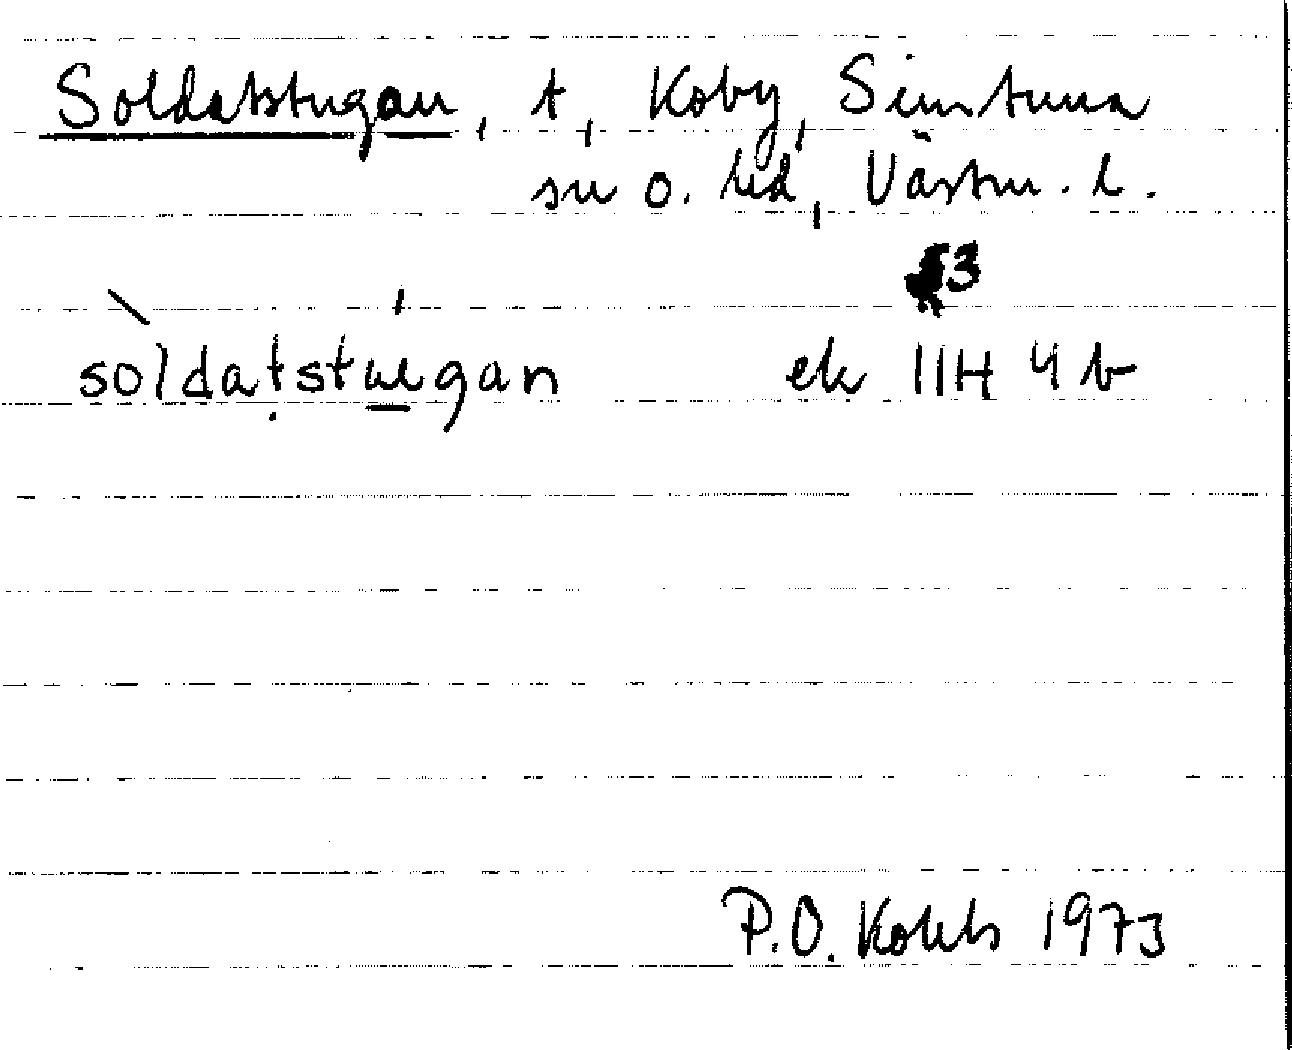 Soldatstugan, t, Koby, Simtuna
sn o. hd, Västm. l.
3
soldatstugan ek 11H 4b
P.O. Kohls 1973